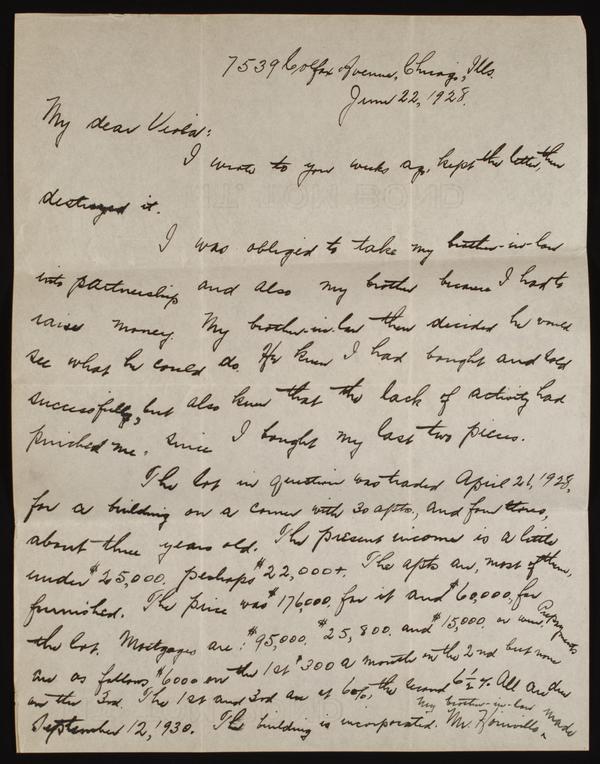 7539 Colfax Avenue, Chicago, Ills.
June 22, 1928.
My dear Viola:
I wrote to you weeks ago, kept the letter, then
destroyed it.
I was obliged to take my brother-in-law
into partnership and also my brother because I had to
raise money. My brother-in-law then decided he would
see what he could do. He knew I had bought and sold
successfully, but also knew that the lack of activity had
pinched me, since I bought my last two pieces.
The lot in question was traded April 21, 1928,
for a building on a corner with 30 apts., and four stores,
about three years old. The present income is a little
under $25,000, perhaps $22,000+. The apts are, most of them,
furnished. The price was $176,000 for it and $60,000, for
the lot. Mortgages are: $95,000. $25,800. and $15,000. or over. Prepayments
are as follows $6000 on the 1st $300 a month on the 2nd but none
on the 3rd. The 1st and 3rd are at 6%, the second 6 1/2 %. All are due
September 12, 1930. The building is incorporated. My brother-in-law Mr. made